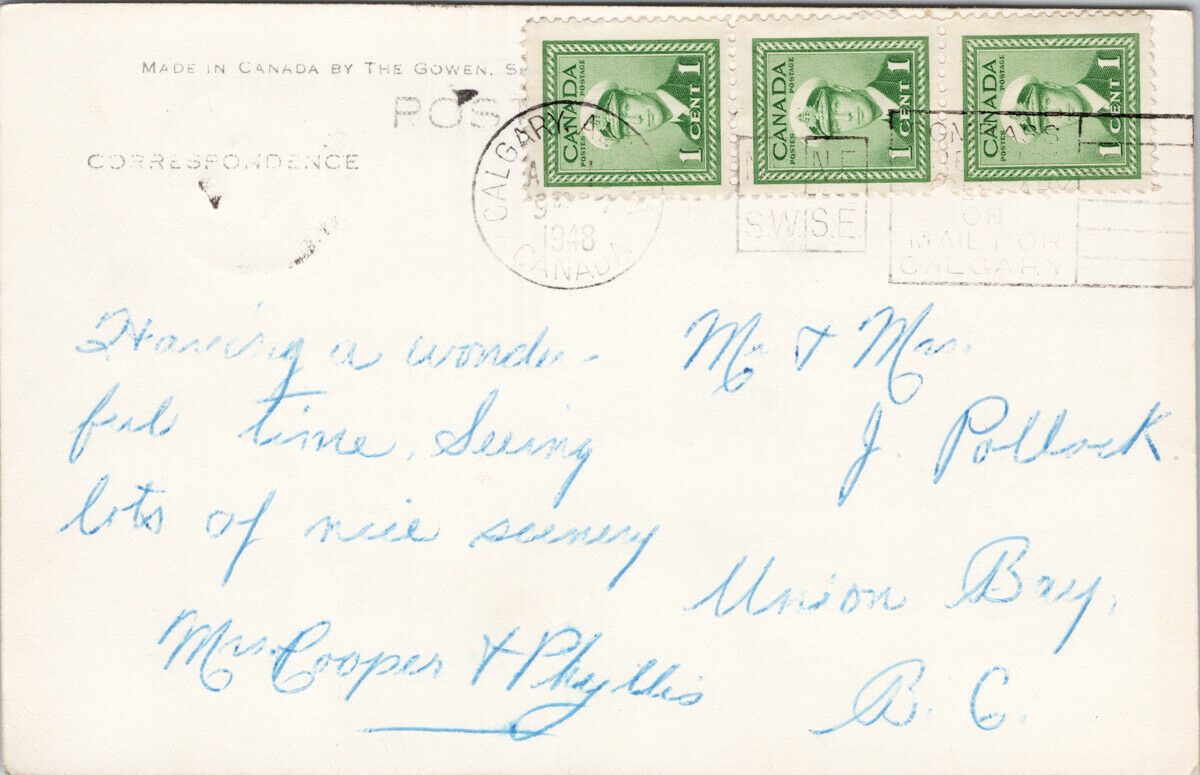 MADE IN CANADA BY THE GOWEN,
POST
CORRESPONDENCE
CANADA
POSTES POSTAGE
1 CENT 1
CANADA
POSTES POSTAGE
1 CENT 1
CANADA
POSTES POSTAGE
1 CENT 1
CALGARY
1948
CANADA
S.W.I.S.E
ON
MAIL FOR
CALGARY
Having a wonder-
ful time. Seeing
lots of nice scenery
Mrs Cooper & Phyllis
Mr. & Mrs.
J. Pollock.
Union Bay,
B. C.